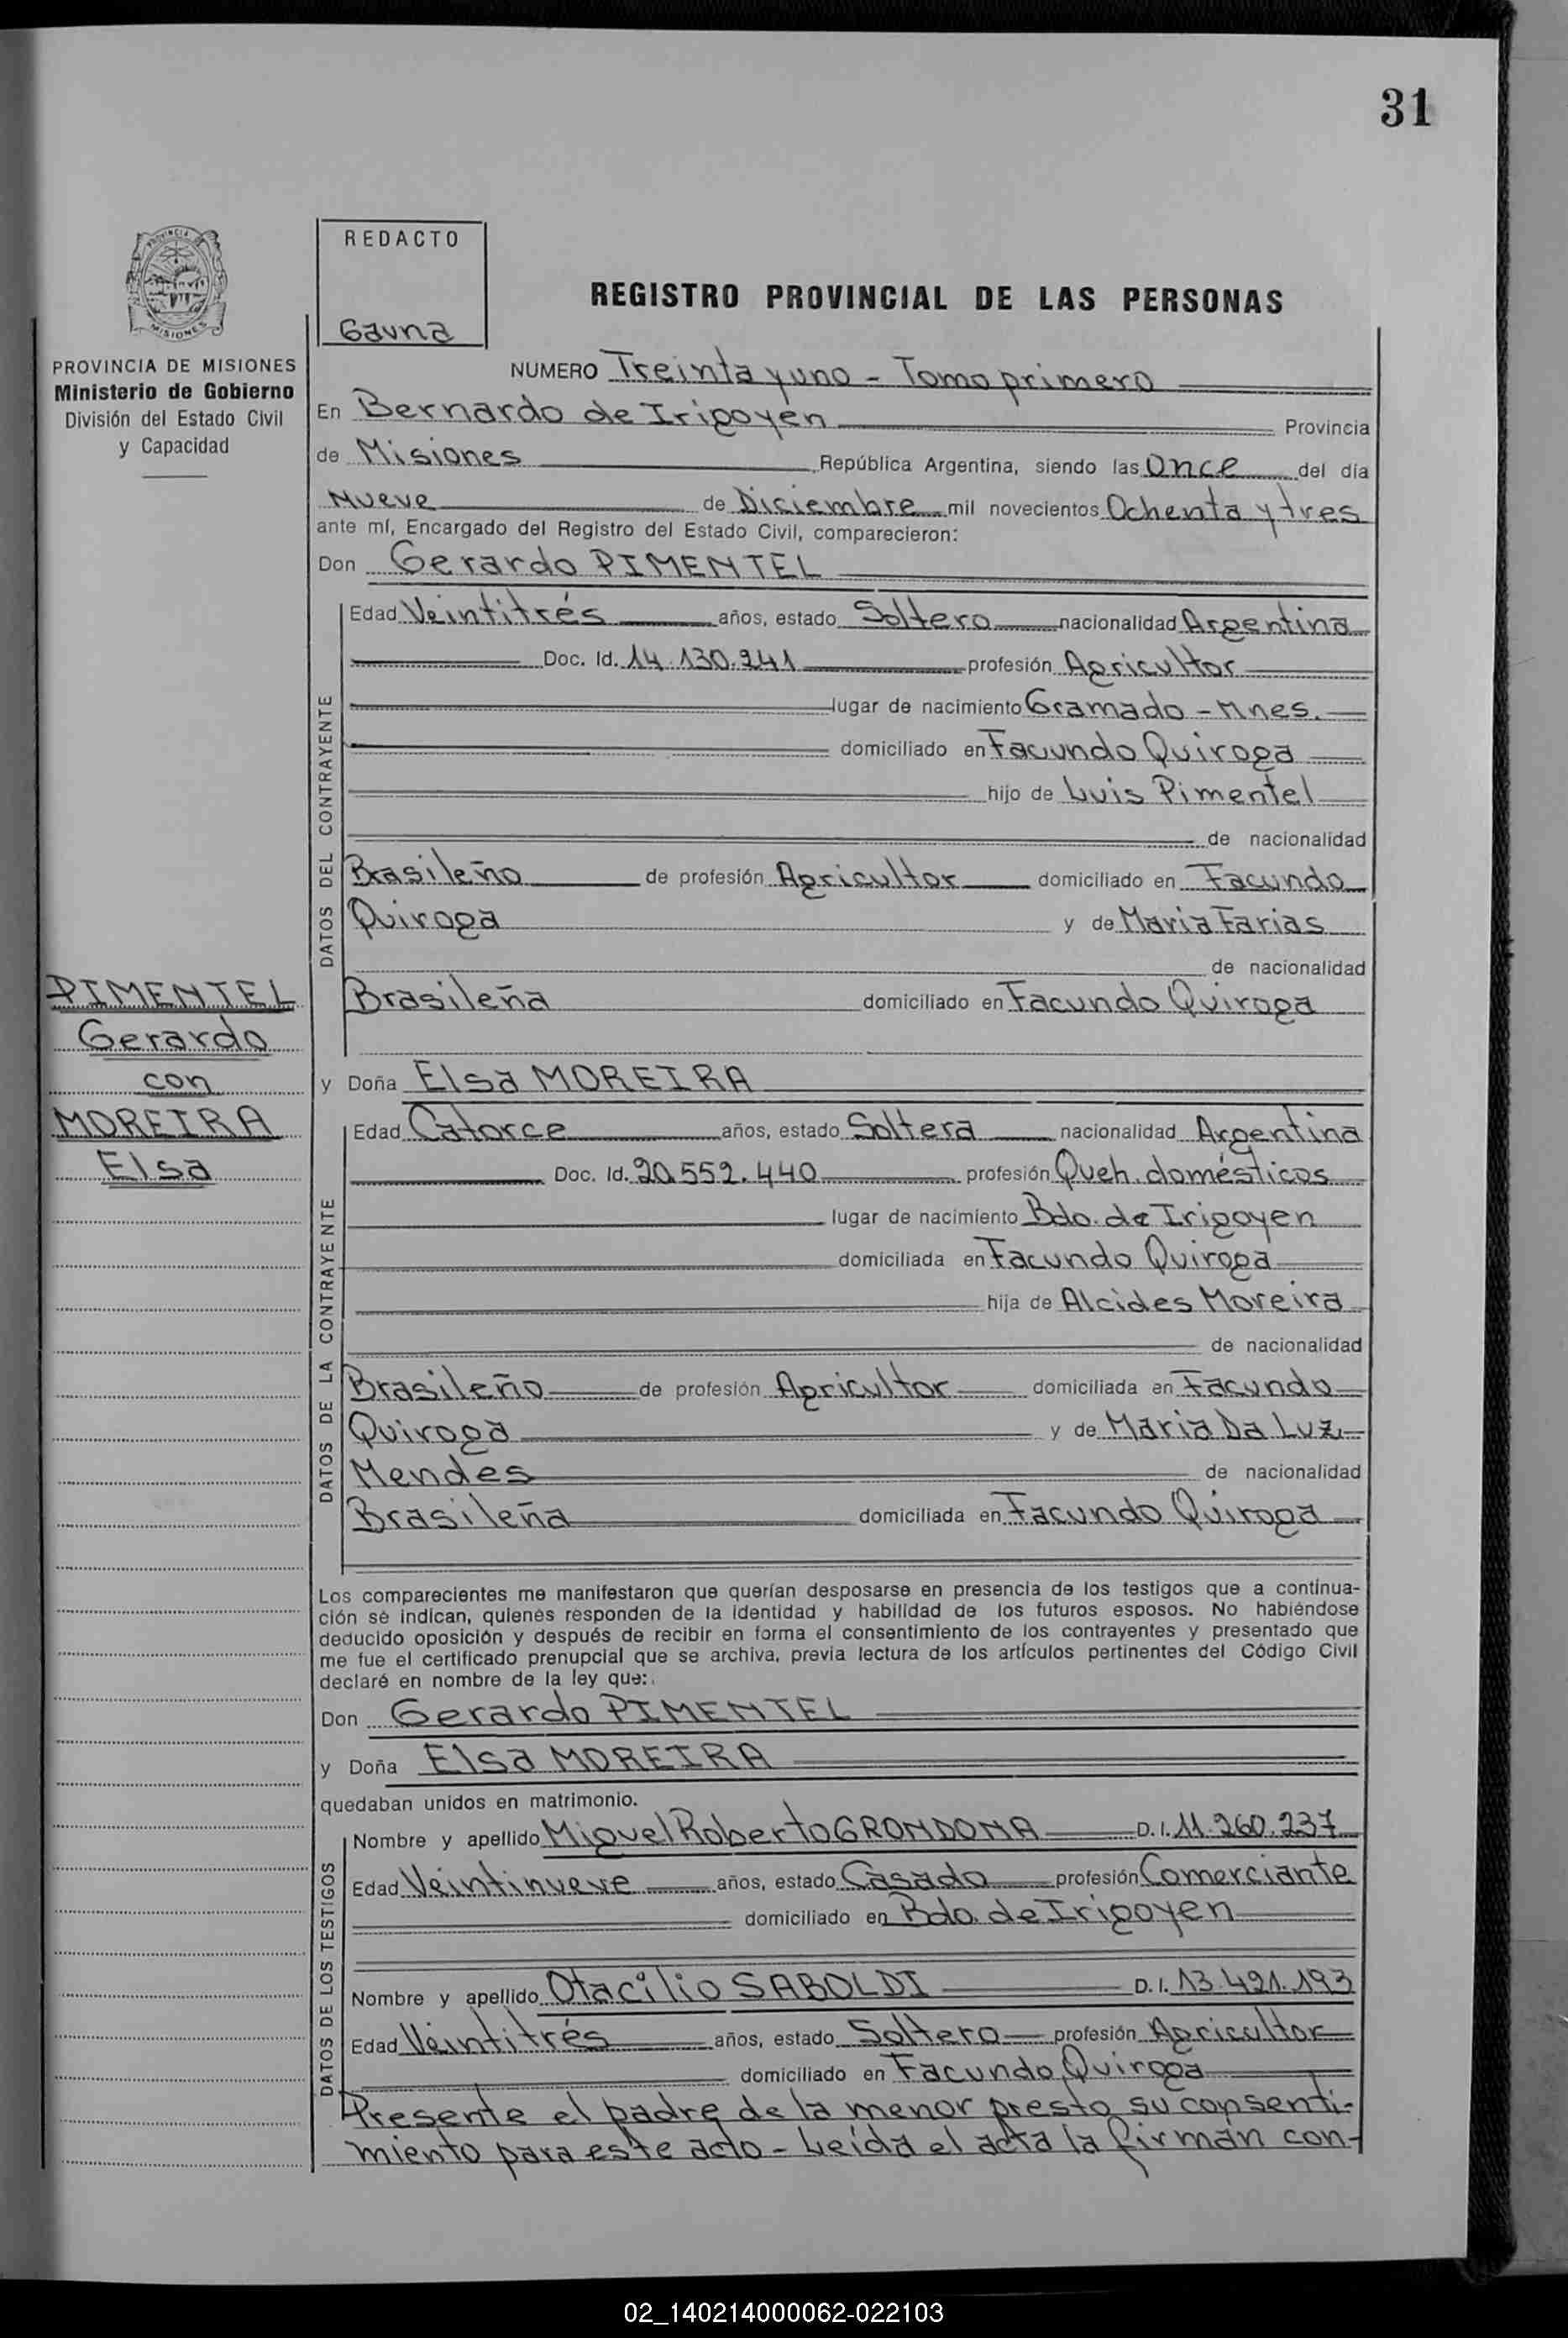 31
REDACTO
Gauna
REGISTRO PROVINCIAL DE LAS PERSONAS
MISIONES
PROVINCIA DE MISIONES
Ministerio de Gobierno
División del Estado Civil
y Capacidad
NUMERO Treinta y uno - Tomo primero
En Bernardo de Irigoyen Provincia
de Misiones República Argentina, siendo las Once del día
Nueve de Diciembre mil novecientos Ochenta y tres
ante mí, Encargado del Registro del Estado Civil, comparecieron:
Don Gerardo PIMENTEL
DATOS DEL CONTRAYENTE
Edad Veintitrés años, estado Soltero nacionalidad Argentina
Doc. Id. 14.130.241 profesión Agricultor
lugar de nacimiento Gramado - Mnes.
domiciliado en Facundo Quiroga
hijo de Luis Pimentel
de nacionalidad
Brasileño de profesión Agricultor domiciliado en Facundo
Quiroga y de Maria Farias
de nacionalidad
Brasileña domiciliado en Facundo Quiroga
PIMENTEL
Gerardo
con
MOREIRA
Elsa
y Doña Elsa MOREIRA
DATOS DE LA CONTRAYENTE
Edad Catorce años, estado Soltera nacionalidad Argentina
Doc. Id. 20.552.440 profesión Queh. domésticos
lugar de nacimiento Bdo. de Irigoyen
domiciliada en Facundo Quiroga
hija de Alcides Moreira
de nacionalidad
Brasileño de profesión Agricultor domiciliada en Facundo
Quiroga y de Maria Da Luz
Mendes de nacionalidad
Brasileña domiciliada en Facundo Quiroga
Los comparecientes me manifestaron que querían desposarse en presencia de los testigos que a continua-
ción se indican, quienes responden de la identidad y habilidad de los futuros esposos. No habiéndose
deducido oposición y después de recibir en forma el consentimiento de los contrayentes y presentado que
me fue el certificado prenupcial que se archiva, previa lectura de los artículos pertinentes del Código Civil
declaré en nombre de la ley que:
Don Gerardo PIMENTEL
y Doña Elsa MOREIRA
quedaban unidos en matrimonio.
DATOS DE LOS TESTIGOS
Nombre y apellido Miguel Roberto GRONDONA D.I. 11.260.237
Edad Veintinueve años, estado Casado profesión Comerciante
domiciliado en Bdo. de Irigoyen
Nombre y apellido Otacilio SABOLDI D.I. 13.421.193
Edad Veintitrés años, estado Soltero profesión Agricultor
domiciliado en Facundo Quiroga
Presente el padre de la menor presto su consenti-
miento para este acto - Leída el acta la firman con-
02_140214000062-022103